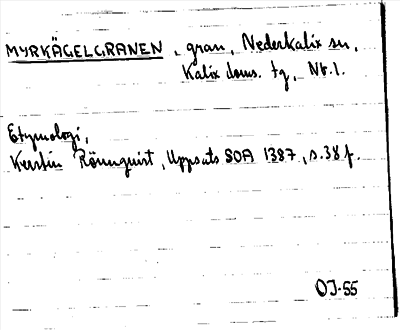 MYRKÄGELGRANEN, gran, Nederkalix sn,
Kalix doms. tg, Nb.l.
Etymologi,
Kerstin Rönnquist, Uppsats SOA 1387, s.38 f.
OJ-55